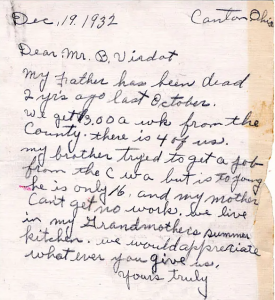 Dec, 19. 1932 Canton Ohio
Dear Mr. B. Virdot
my Father has been dead
2 yrs ago last October.
we get $3.00 a wk from the
County. there is 4 of us.
my brother tryed to get a job
from the C W A but is to young
he is only 16, and my mother
Can't get no work. we live
in my Grandmothers summer
kitchen. we would appreciate
what ever you give us.
Yours truly